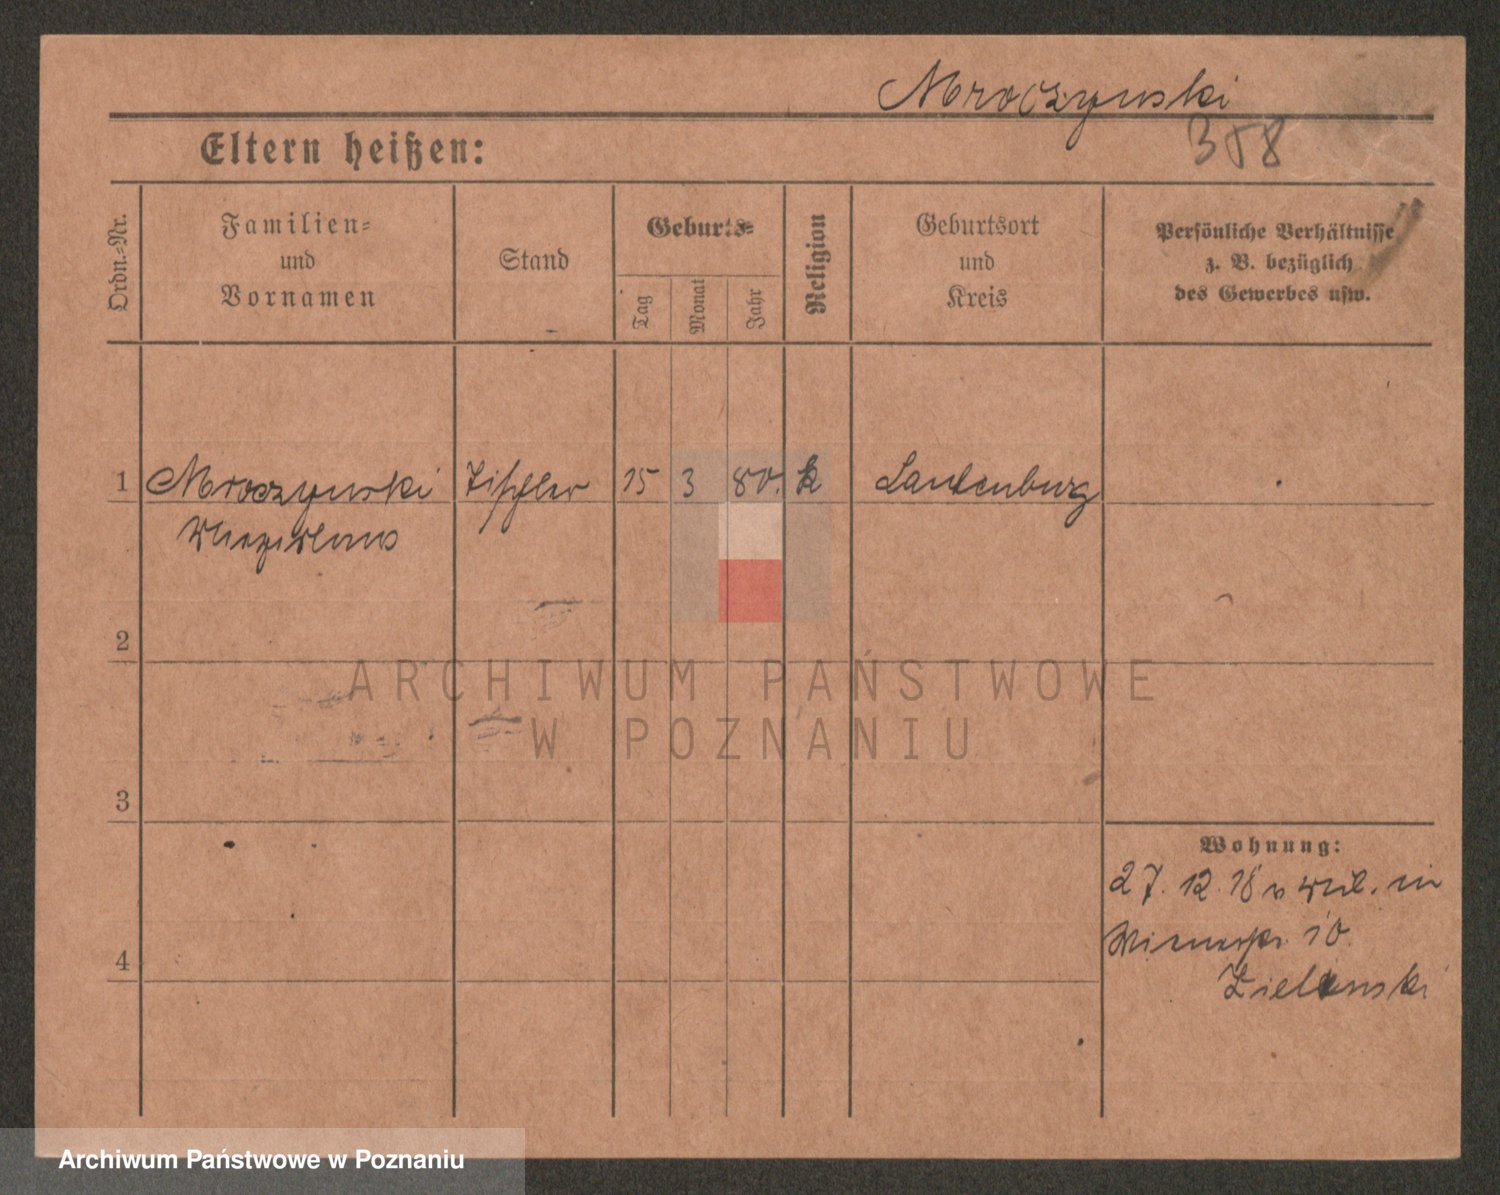 Mroczynski
358
Eltern heißen:
Ordn.-Nr.
Familien-
und
Vornamen
Stand
Geburts-
Tag
Monat
Jahr
Religion
Geburtsort
und
Kreis
Persönliche Verhältnisse
z. B. bezüglich
des Gewerbes usw.
1 Mroczynski Tischler 15 3 80. k Lautenburg
2
ARCHIWUM PAŃSTWOWE
W POZNANIU
3
Wohnung:
27. 12. 18 v in
10
4
Zielinski
Archiwum Państwowe w Poznaniu